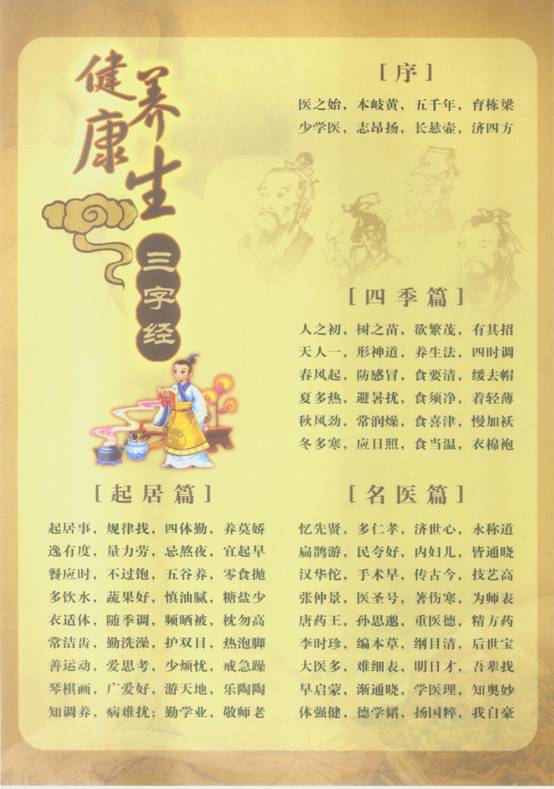 健康养生
三字经
[序]
医之始，本岐黄，五千年，育栋梁
少学医，志昂扬，长悬壶，济四方
[四季篇]
人之初，树之苗，欲繁茂，有其招
天人一，形神道，养生法，四时调
春风起，防感冒，食要清，缓去帽
夏多热，避暑扰，食须净，着轻薄
秋风劲，常润燥，食喜津，慢加袄
冬多寒，应日照，食当温，衣棉袍
[起居篇]
起居事，规律找，四体勤，养莫娇
逸有度，量力劳，忌熬夜，宜起早
餐应时，不过饱，五谷养，零食抛
多饮水，蔬果好，慎油腻，糖盐少
衣适体，随季调，频晒被，枕勿高
常洁齿，勤洗澡，护双目，热泡脚
善运动，爱思考，少烦忧，戒急躁
琴棋画，广爱好，游天地，乐陶陶
知调养，病难扰；勤学业，敬师老
[名医篇]
忆先贤，多仁孝，济世心，永称道
扁鹊游，民夸好，内妇儿，皆通晓
汉华佗，手术早，传古今，技艺高
张仲景，医圣号，著伤寒，为师表
唐药王，孙思邈，重医德，精方药
李时珍，编本草，纲目清，后世宝
大医多，难细表，明日才，吾辈找
早启蒙，渐通晓，学医理，知奥妙
体强健，德学韬，扬国粹，我自豪